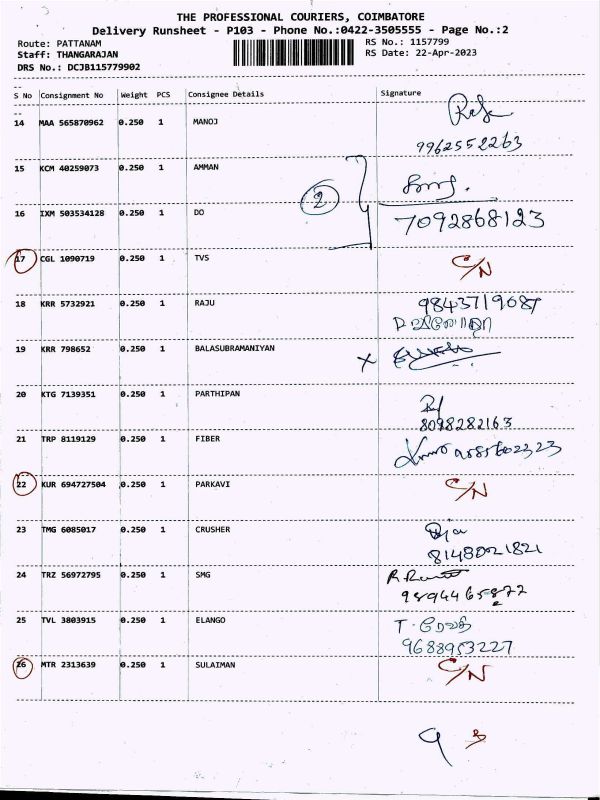 THE PROFESSIONAL COURIERS, COIMBATORE
Delivery Runsheet - P103 - Phone No.:0422-3505555 - Page No.:2
Route: PATTANAM RS No.: 1157799
Staff: THANGARAJAN RS Date: 22-Apr-2023
DRS No.: DCJB115779902
S No Consignment No Weight PCS Consignee Details Signature
14 MAA 565870962 0.250 1 MANOJ
9962552263
15 KCM 40259073 0.250 1 AMMAN
2
16 IXM 503534128 0.250 1 DO 7092868123
17 CGL 1090719 0.250 1 TVS C/N
18 KRR 5732921 0.250 1 RAJU 9843719687
19 KRR 798652 0.250 1 BALASUBRAMANIYAN
X
20 KTG 7139351 0.250 1 PARTHIPAN
8098282163
21 TRP 8119129 0.250 1 FIBER
22 KUR 694727504 0.250 1 PARKAVI C/N
23 TMG 6085017 0.250 1 CRUSHER
8148021821
24 TRZ 56972795 0.250 1 SMG
9894465872
25 TVL 3803915 0.250 1 ELANGO T. ரேவதி
9688953227
26 MTR 2313639 0.250 1 SULAIMAN C/N
9 3